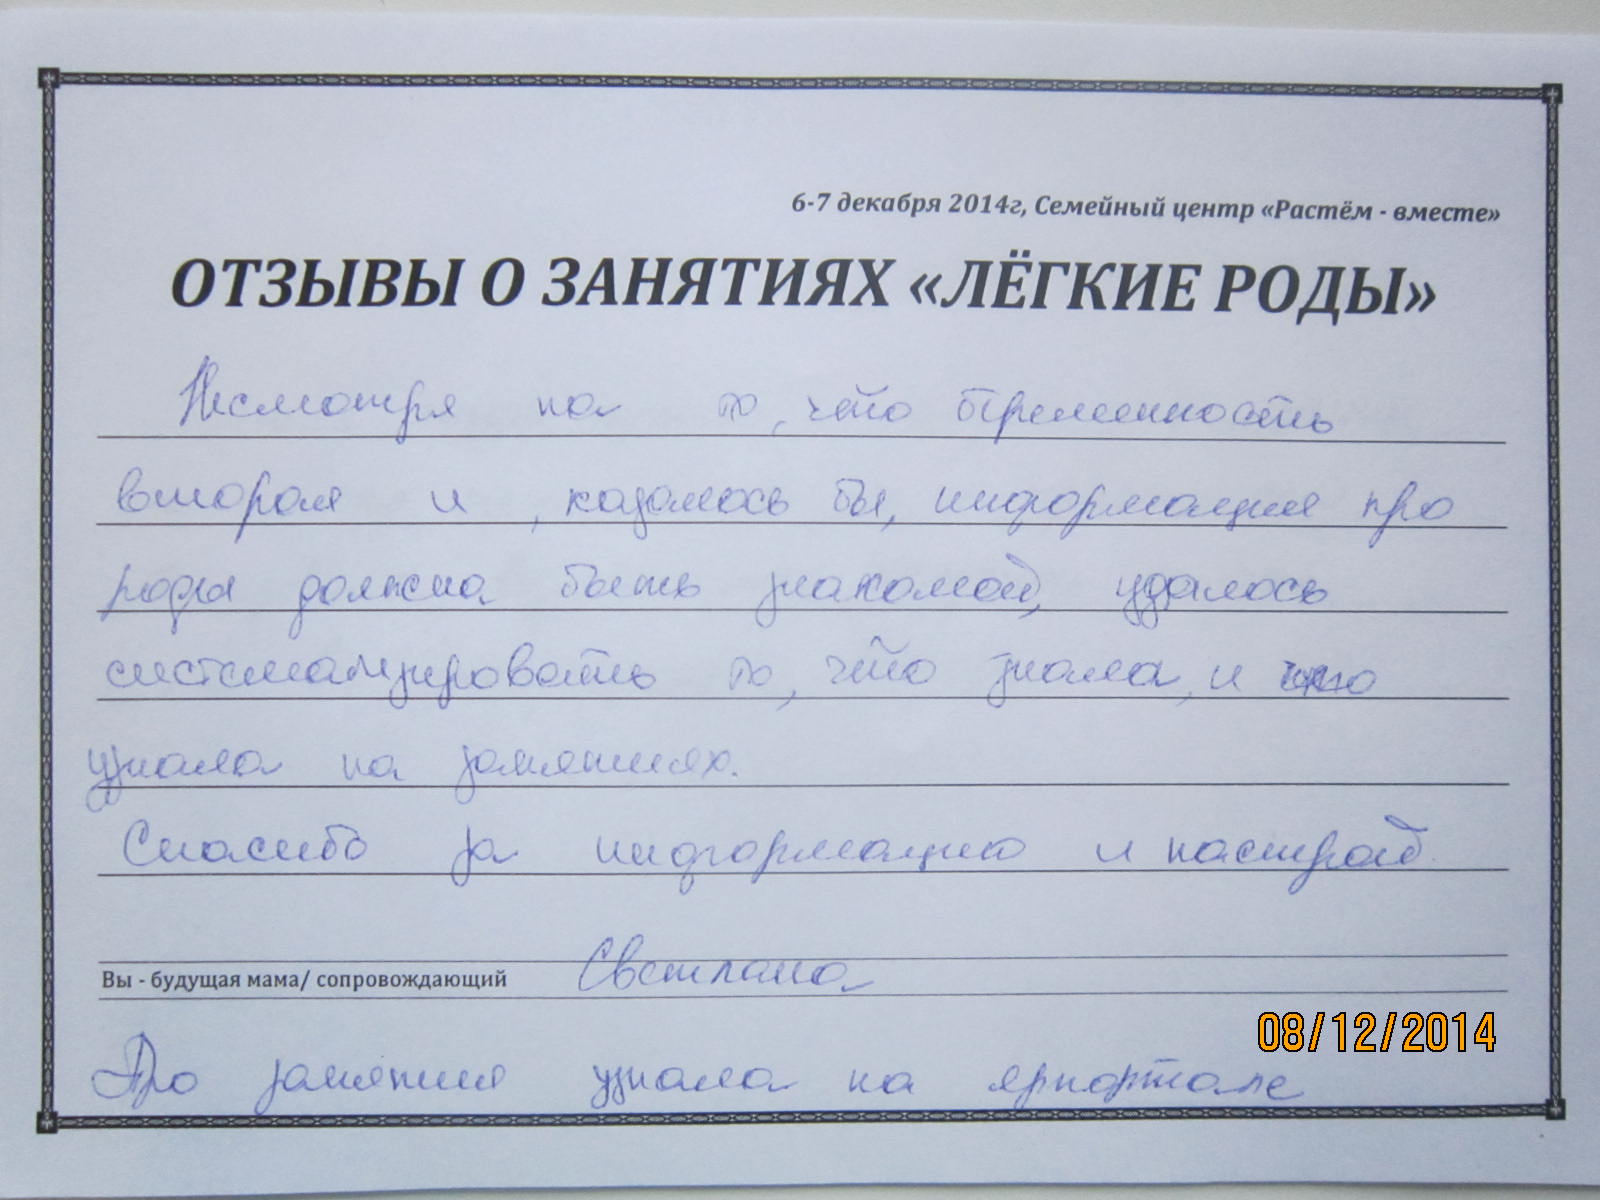 6-7 декабря 2014г, Семейный центр «Растём - вместе»
ОТЗЫВЫ О ЗАНЯТИЯХ «ЛЁГКИЕ РОДЫ»
Несмотря на то, что беременность
вторая и, казалось бы, информация про
роды должна быть знакомой, удалось
систематизировать то, что знала, и что
узнала на занятиях.
Спасибо за информацию и настрой
Вы - будущая мама/ сопровождающий Светлана
08/12/2014
Про занятия узнала на ярпортале